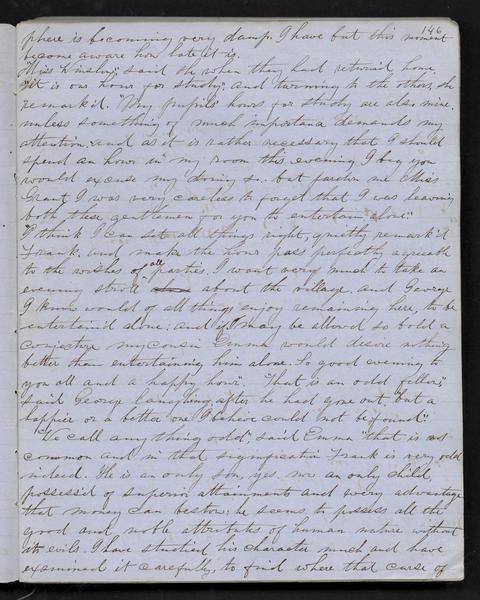 146
phere is becomming very damp. I have but this moment
become aware how late it is.
Miss Kinsley," said she when they had return'd home.
"It is our hour for study," and turning to the others, she
remark'd. "My pupils' hours for study are also mine,
unless something of much importance demands my
attention, and as it is rather necessary that I should
spend an hour in my room this evening I beg you
would excuse my doing so. but pardon me Miss
Grant I was very careless to forget that I was leaving
both these gentlemen for you to entertain alone."
"I think I can set all things right, quietly remark'd
Frank. and make the hour pass perfectly agreeable
to the wishes of all parties. I want very much to take an
evening stroll about the village, and George
I know would of all things enjoy remaining here, to be
entertain'd alone: and if I may be allowed so bold a
conjecture my cousin Emma would desire nothing
better than entertaining him alone. So good evening to
you all and a happy hour". "That is an odd fellow,"
said George laughing, after he had gone out "but a
happier or a better one I believe could not be found."
"We call any thing odd," said Emma "that is not
common and in that signification Frank is very odd
indeed. He is an only son, yes. nor an only child,
possess'd of superior attainments and every advantage
that money can bestow: he seems to possess all the
good and noble attributes of human nature without
its evils. I have studied his character much and have
examined it carefully, to find where that curse of